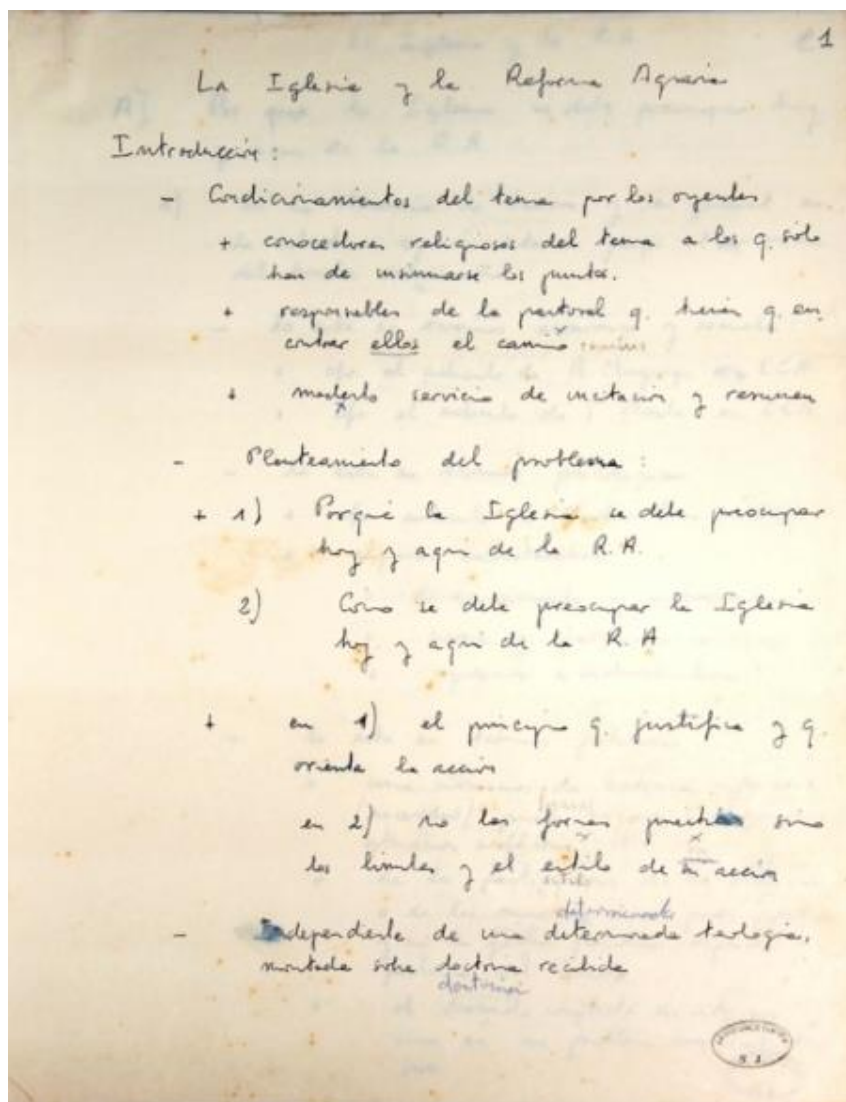 1
La Iglesia y la Reforma Agraria
Introducción:
- Condicionamientos del tema por los oyentes
+ conocedores religiosos del tema a los q. sólo
han de insinuarse los puntos.
+ responsables de la pastoral q. tienen q. en
contrar ellos el camino
+ modesto servicio de incitación y resumen
- Planteamiento del problema:
+ 1) Porqué la Iglesia se debe preocupar
hoy y aquí de la R.A.
2) Cómo se debe preocupar la Iglesia
hoy y aquí de la R.A
+ en 1) el principio q. justifica y q.
orienta la acción
en 2) no las formas sino
los límites y el estilo de su acción
determinada
- Independiente de una determinada teología,
montada sobre doctrina recibida
doctrina